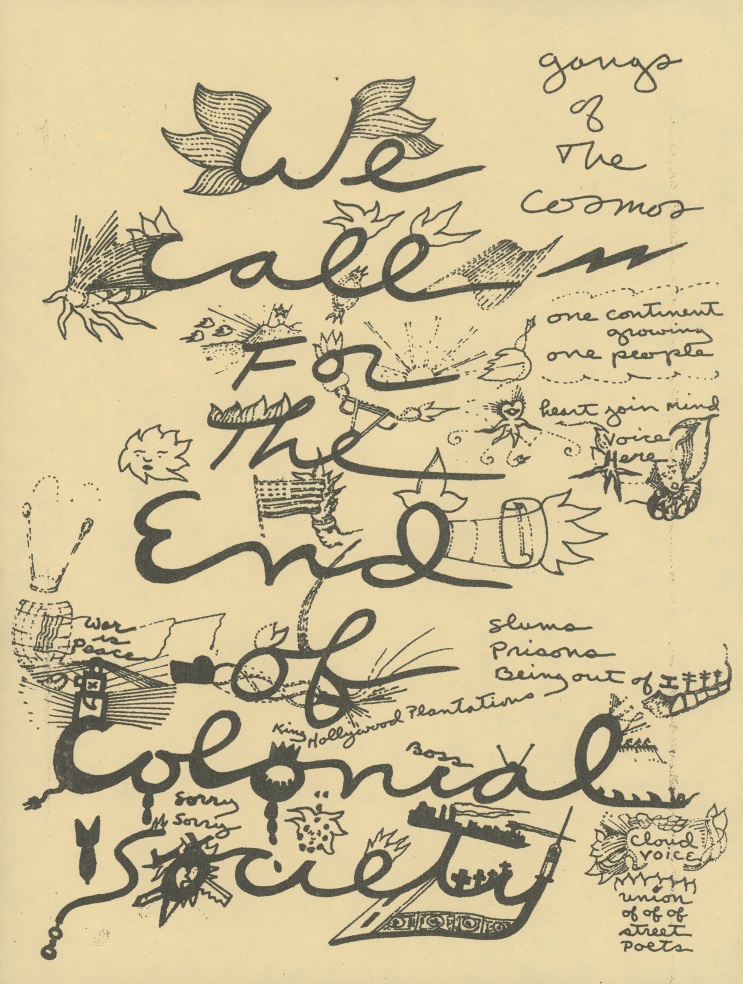 We
call
For
The
End
of
Colonial
Society
gangs
of
The
Cosmos
one continent
growing
one people
heart join mind
Voice
Here
War
is
Peace
Slums
Prisons
Being out of
King Hollywood Plantations
Boss
Sorry
Sorry
Cloud
VOICE
union
of of of
street
Poets